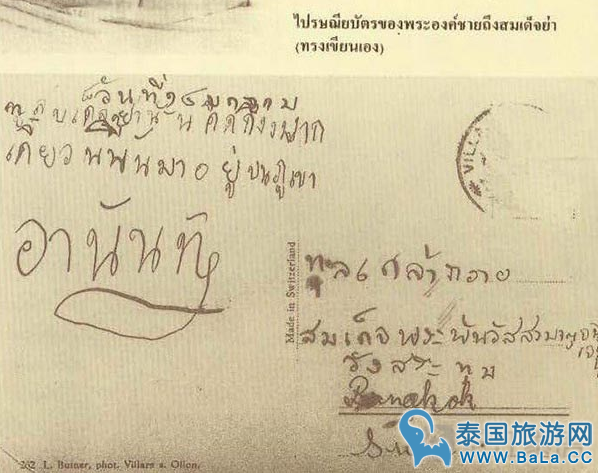 ไปรษณียบัตรของพระองค์ชายถึงสมเด็จย่า
(ทรงเขียนเอง)
วันที่ ๕ มกราคม
คิดถึงมาก
เดี๋ยวนี้ฉันมาอยู่บนภูเขา
อานันท
ทูลเกล้าถวาย
สมเด็จพระพันวัสสา
วังสระทุม
Bangkok
Made in Switzerland
202 L. Butner, phot. Villars s. Ollon.
VILLA
泰国旅游网
www.BaLa.CC